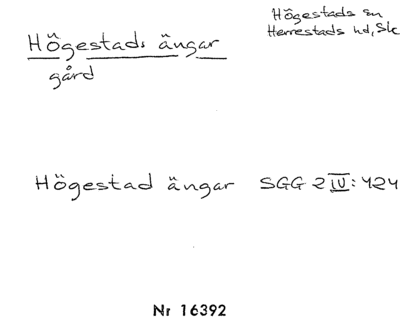 Högestads sn
Herrestads hd, Sk
Högestads ängar
gård
Högestad ängar SGG 2 IV: 424
Nr 16392